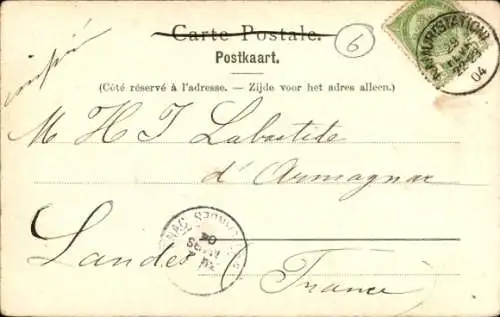 Carte Postale.
Postkaart.
(Côté réservé à l'adresse. — Zijde voor het adres alleen.)
6
(STATION)
04
M H J Labastide
d'Armagnac
Landes
MARS
04
France